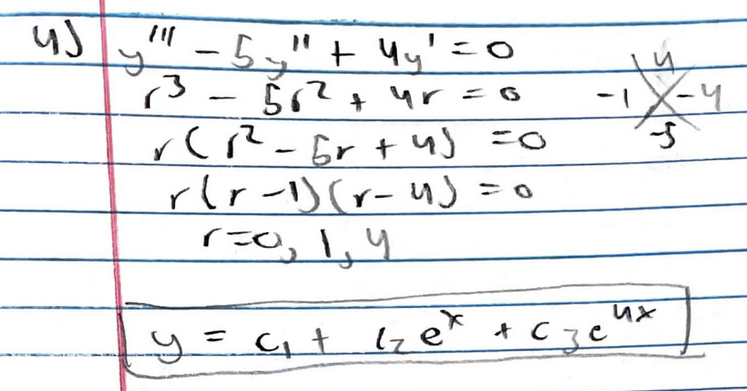 4) y''' - 5y'' + 4y' = 0
r³ - 5r² + 4r = 0
4
-1 -4
-5
r(r² - 5r + 4) = 0
r(r-1)(r-4) = 0
r=0, 1, 4
y = c₁ + c₂eˣ + c₃e⁴ˣ